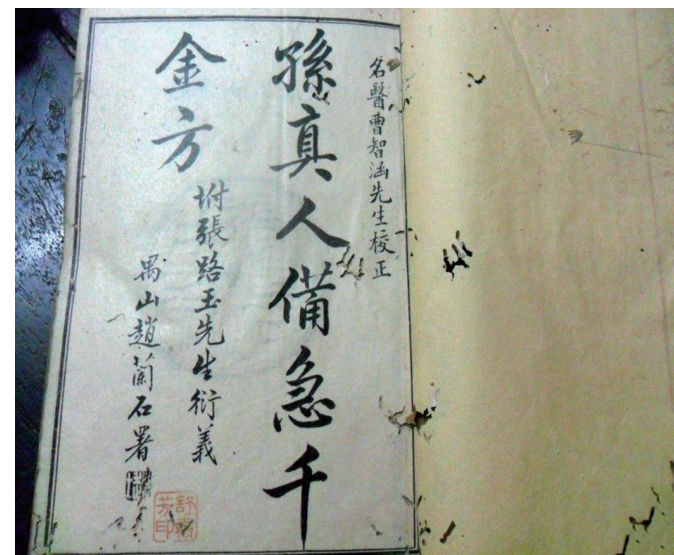 名醫曹智涵先生校正
孫真人備急千
金方
坿張路玉先生衍義
禺山趙蘭石署